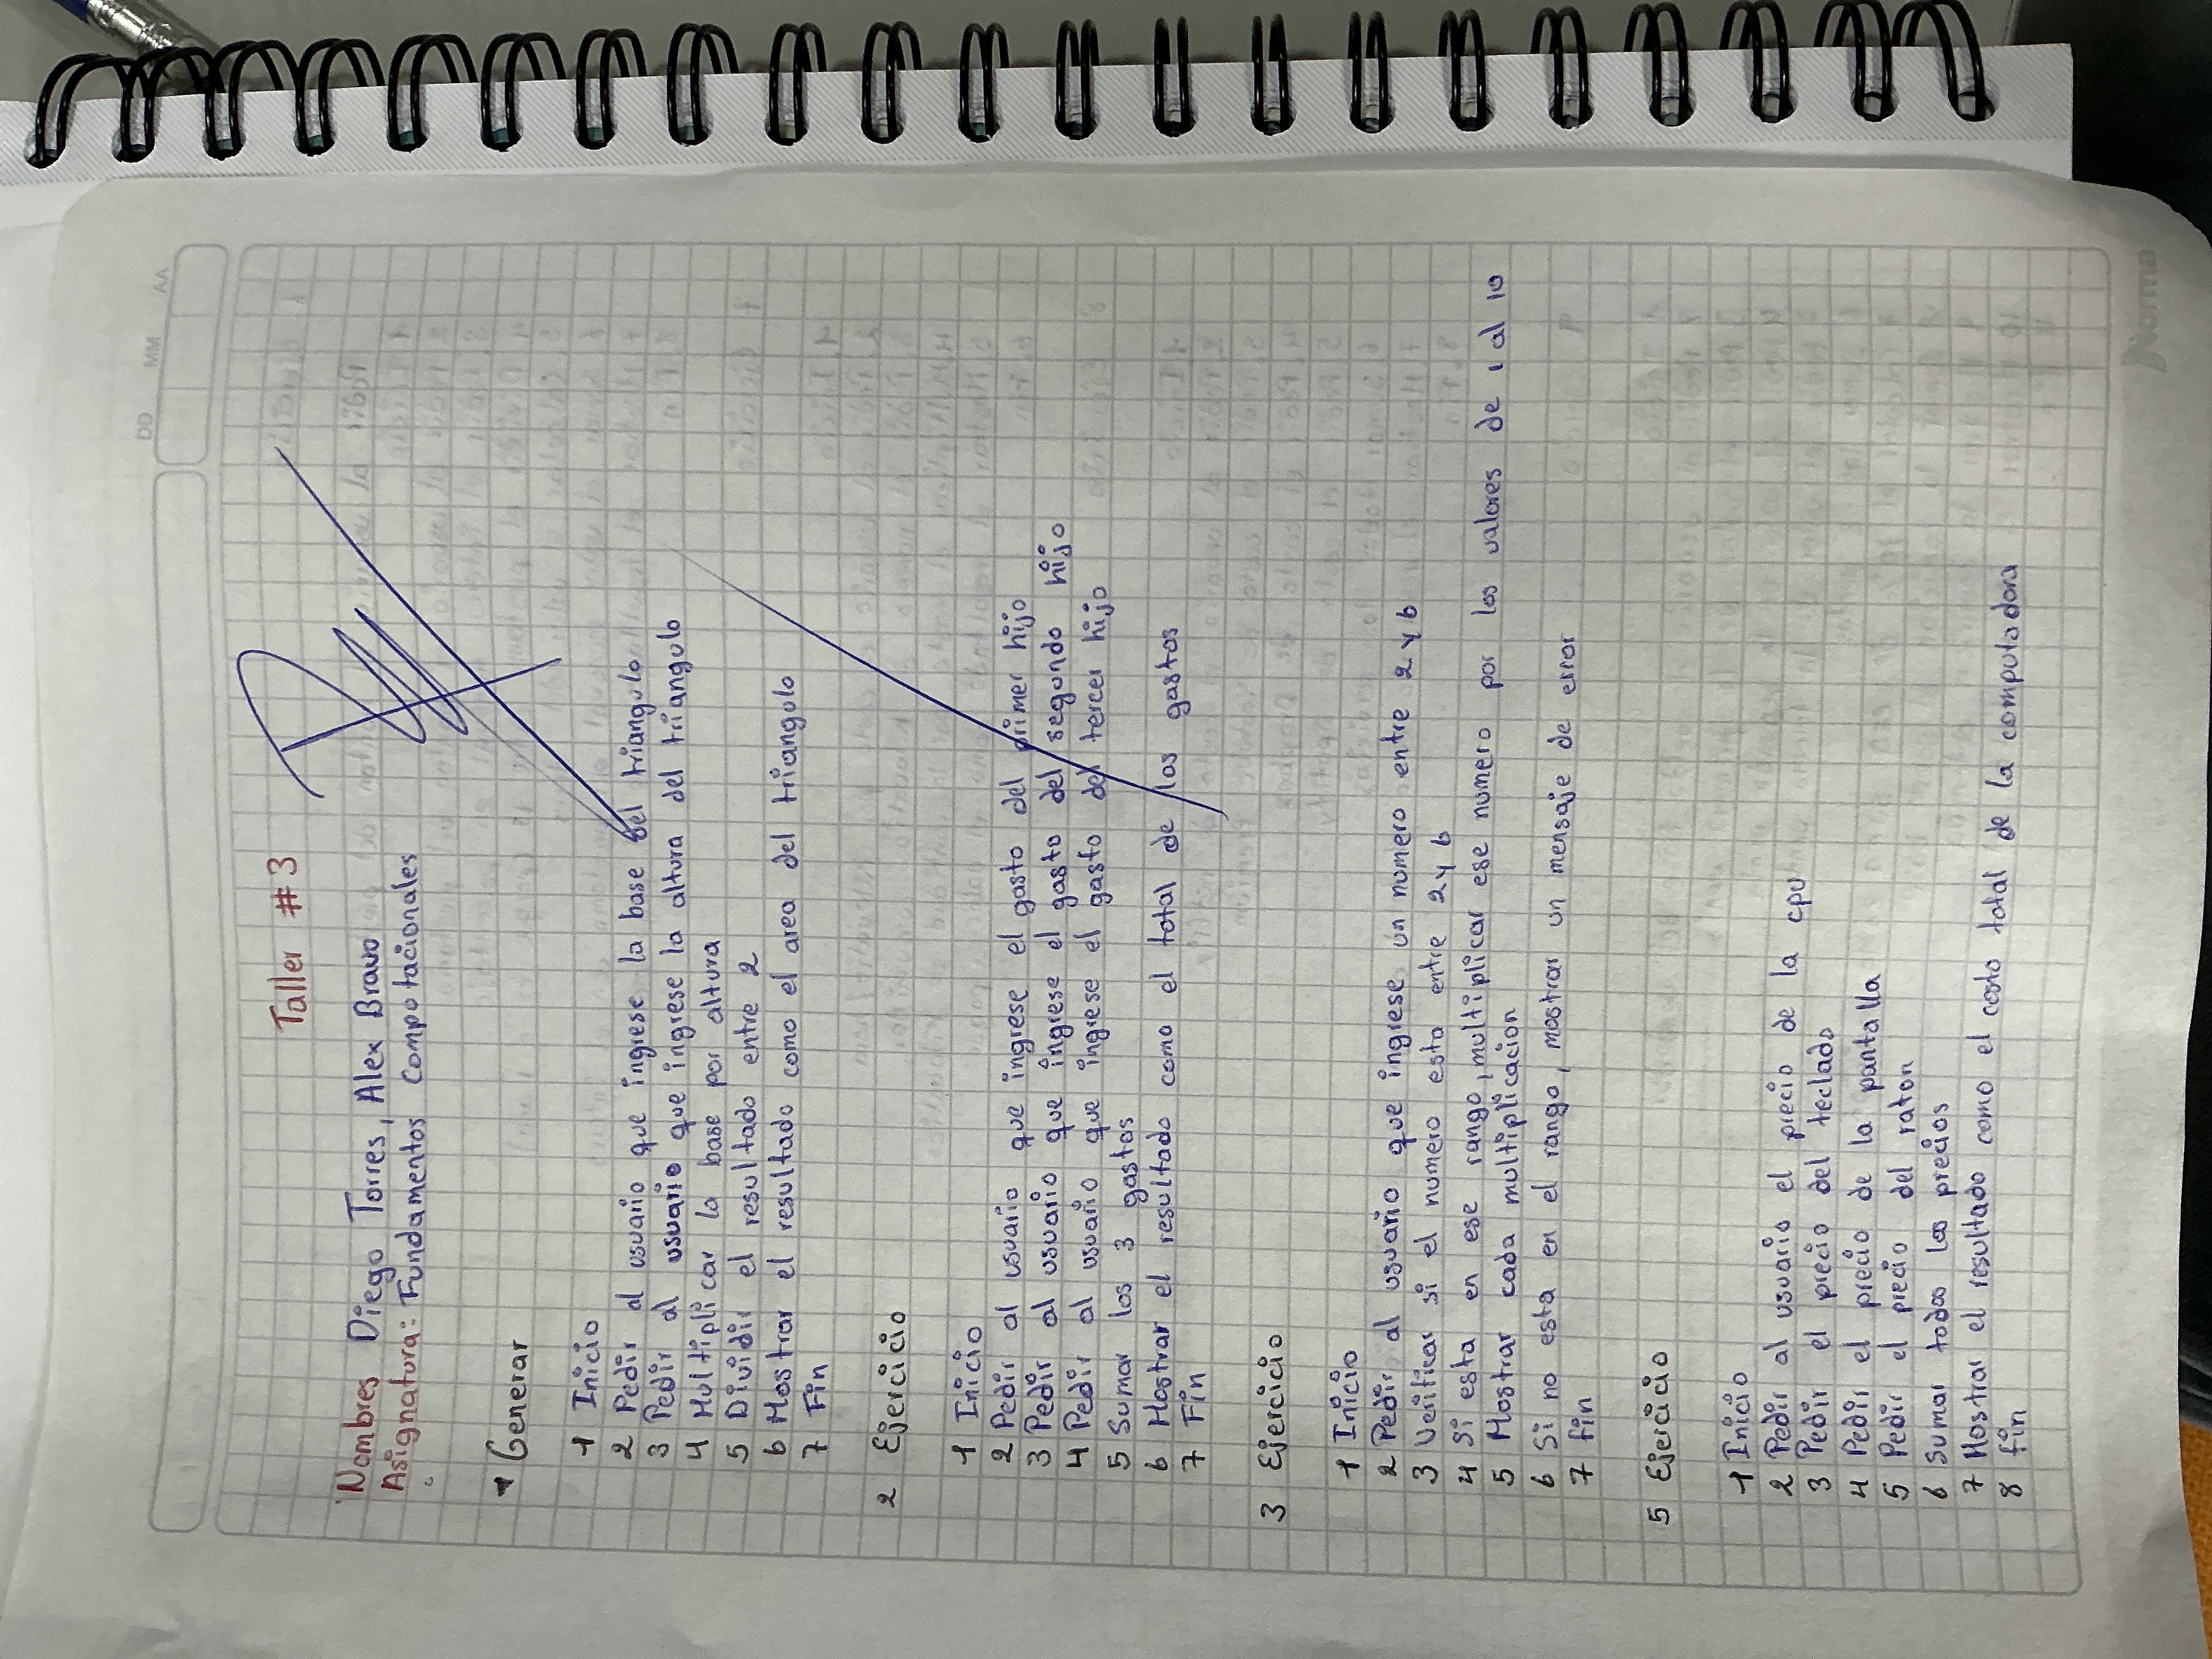 DD MM AA
Taller #3
Nombres Diego Torres, Alex Bravo
Asignatura: Fundamentos Computacionales
1 Generar
1 Inicio
2 Pedir al usuario que ingrese la base del triangulo
3 Pedir al usuario que ingrese la altura del triangulo
4 Multiplicar la base por altura
5 Dividir el resultado entre 2
6 Mostrar el resultado como el area del triangulo
7 Fin
2 Ejercicio
1 Inicio
2 Pedir al usuario que ingrese el gasto del primer hijo
3 Pedir al usuario que ingrese el gasto del segundo hijo
4 Pedir al usuario que ingrese el gasto del tercer hijo
5 Sumar los 3 gastos
6 Mostrar el resultado como el total de los gastos
7 Fin
3 Ejercicio
1 Inicio
2 Pedir al usuario que ingrese un numero entre 2 y 6
3 Verificar si el numero esta entre 2 y 6
4 Si esta en ese rango, multiplicar ese numero por los valores de 1 al 10
5 Mostrar cada multiplicacion
6 Si no esta en el rango, mostrar un mensaje de error
7 fin
5 Ejercicio
1 Inicio
2 Pedir al usuario el precio de la cpu
3 Pedir el precio del teclado
4 Pedir el precio de la pantalla
5 Pedir el precio del raton
6 Sumar todos los precios
7 Mostrar el resultado como el costo total de la computadora
8 fin
Norma